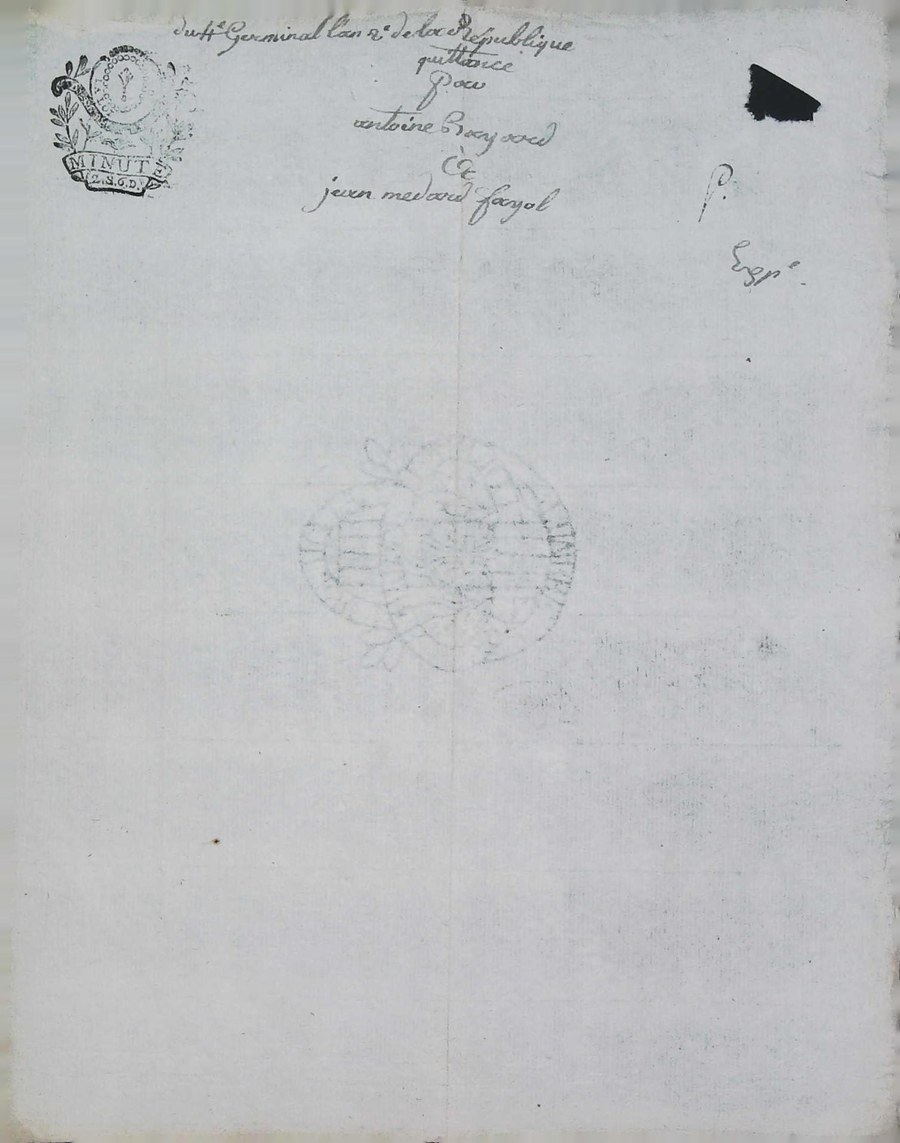 du 4e Germinal l'an 2e de la République
quittance
pour
antoine Bayard
à
jean medard fayol
P.
Exp.é
MINUTE
2.S.6.D.